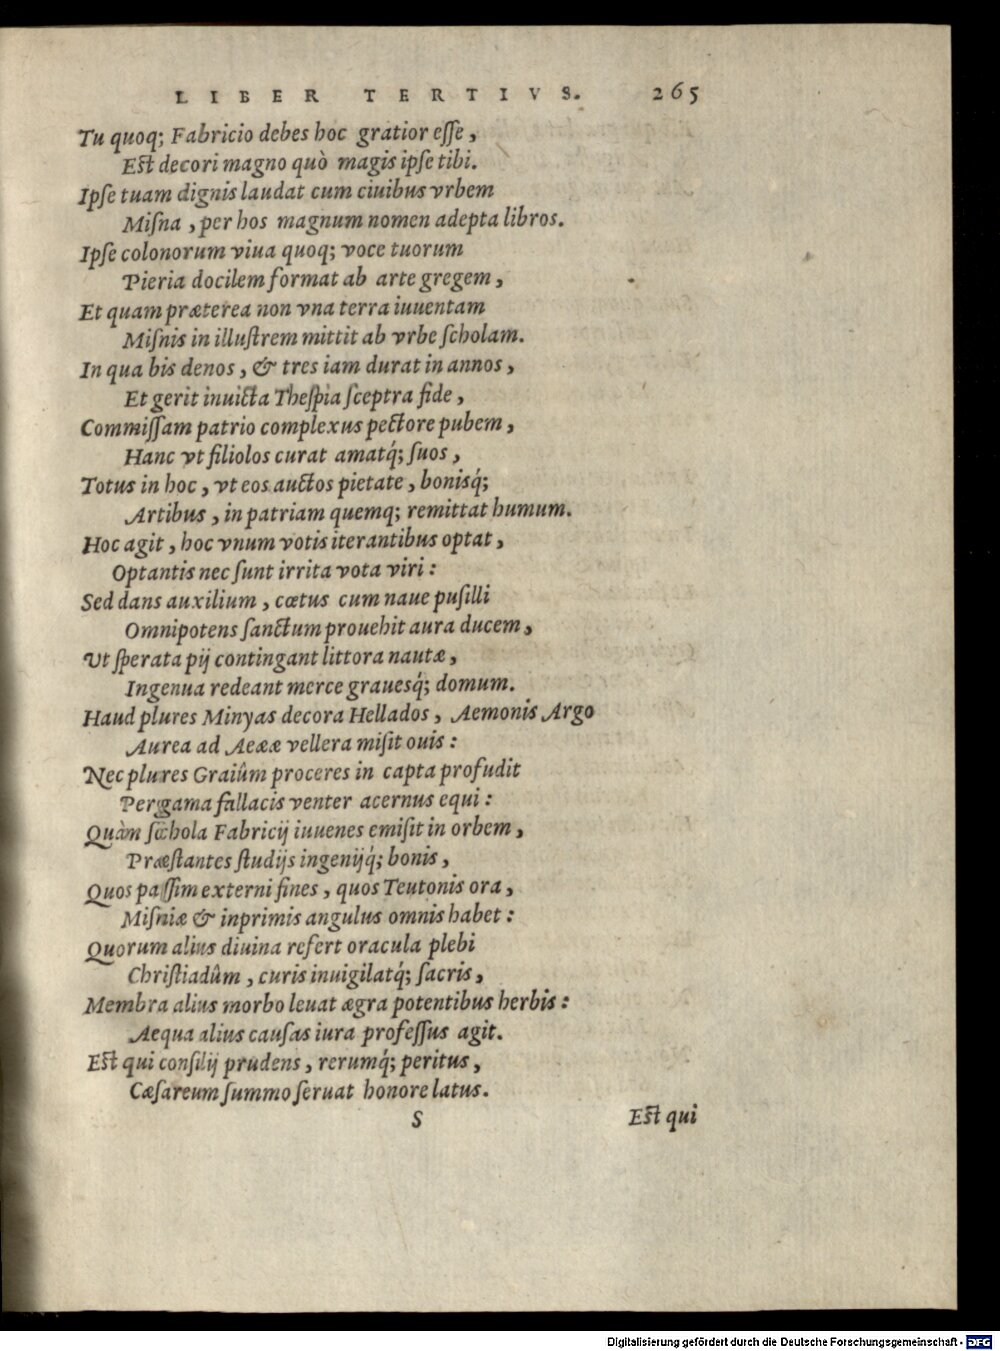 LIBER TERTIVS. 265
Tu quoq; Fabricio debes hoc gratior eſſe,
Eſt decori magno quò magis ipſe tibi.
Ipſe tuam dignis laudat cum ciuibus vrbem
Miſna, per hos magnum nomen adepta libros.
Ipſe colonorum viua quoq; voce tuorum
Pieria docilem format ab arte gregem,
Et quam præterea non vna terra iuuentam
Miſnis in illuſtrem mittit ab vrbe ſcholam.
In qua bis denos, & tres iam durat in annos,
Et gerit inuicta Theſpia ſceptra fide,
Commiſſam patrio complexus pectore pubem,
Hanc vt filiolos curat amatq́; ſuos,
Totus in hoc, vt eos auctos pietate, bonisq́;
Artibus, in patriam quemq; remittat humum.
Hoc agit, hoc vnum votis iterantibus optat,
Optantis nec ſunt irrita vota viri:
Sed dans auxilium, cœtus cum naue puſilli
Omnipotens ſanctum prouehit aura ducem,
Ut ſperata pij contingant littora nautæ,
Ingenua redeant merce grauesq́; domum.
Haud plures Minyas decora Hellados, Aemonis Argo
Aurea ad Aeææ vellera miſit ouis:
Nec plures Graiûm proceres in capta profudit
Pergama fallacis venter acernus equi:
Quàm ſchola Fabricij iuuenes emiſit in orbem,
Præſtantes ſtudijs ingenijq́; bonis,
Quos paſſim externi fines, quos Teutonis ora,
Miſniæ & inprimis angulus omnis habet:
Quorum alius diuina refert oracula plebi
Chriſtiadûm, curis inuigilatq́; ſacris,
Membra alius morbo leuat ægra potentibus herbis:
Aequa alius cauſas iura profeſſus agit.
Eſt qui conſilij prudens, rerumq́; peritus,
Cæſareum ſummo ſeruat honore latus.
S Eſt qui
Digitalisierung gefördert durch die Deutsche Forschungsgemeinschaft - DFG